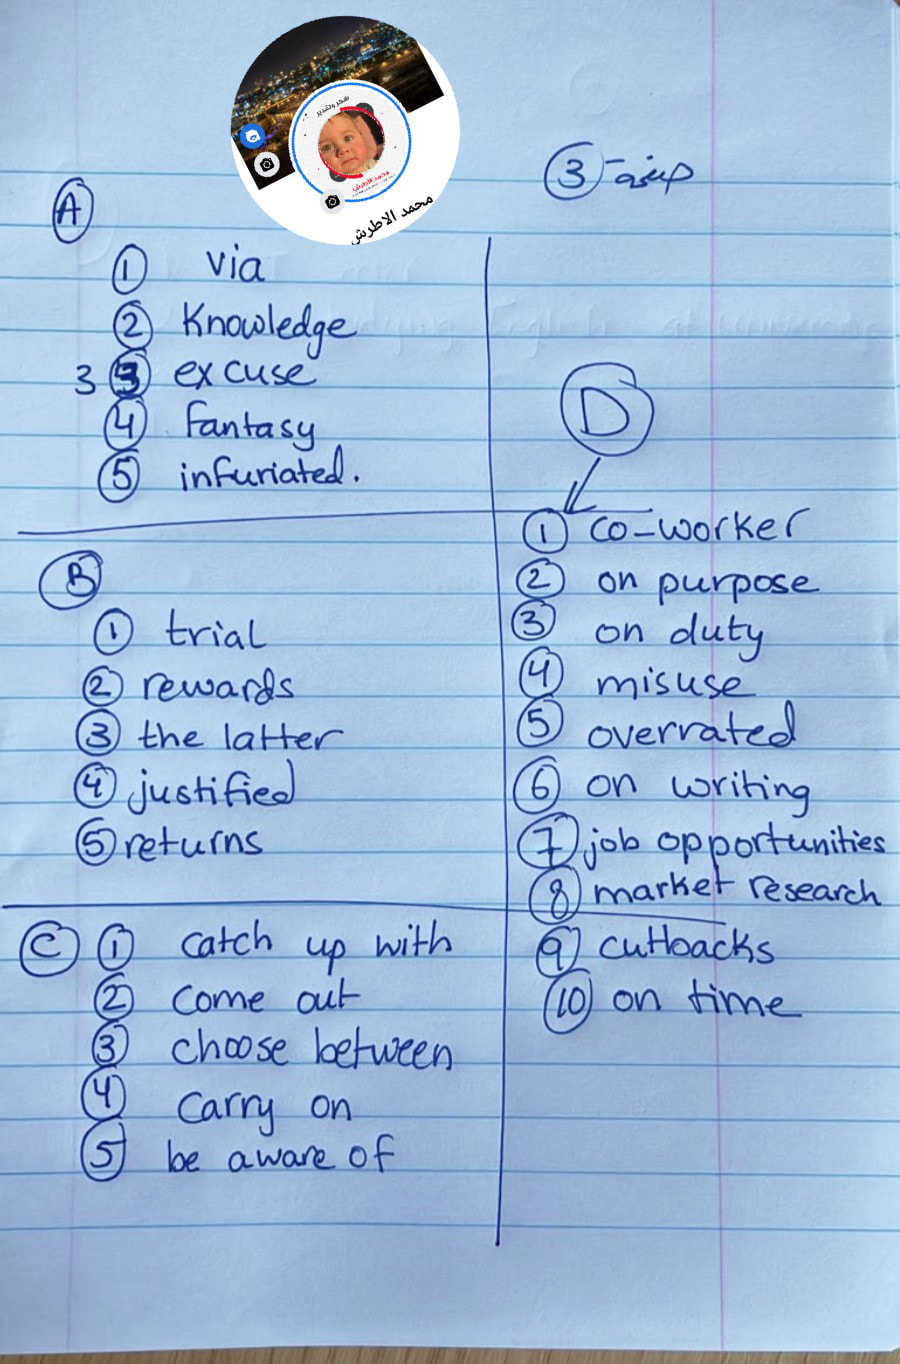 شكر وتقدير
محمد الاطرش
محمد الاطرش
3 -
A
1 via
2 Knowledge
3 3 excuse
4 fantasy
5 infuriated.
B
1 trial
2 rewards
3 the latter
4 justified
5 returns
C 1 catch up with
2 come out
3 choose between
4 carry on
5 be aware of
D
1 co-worker
2 on purpose
3 on duty
4 misuse
5 overrated
6 on writing
7 job opportunities
8 market research
9 cutbacks
10 on time